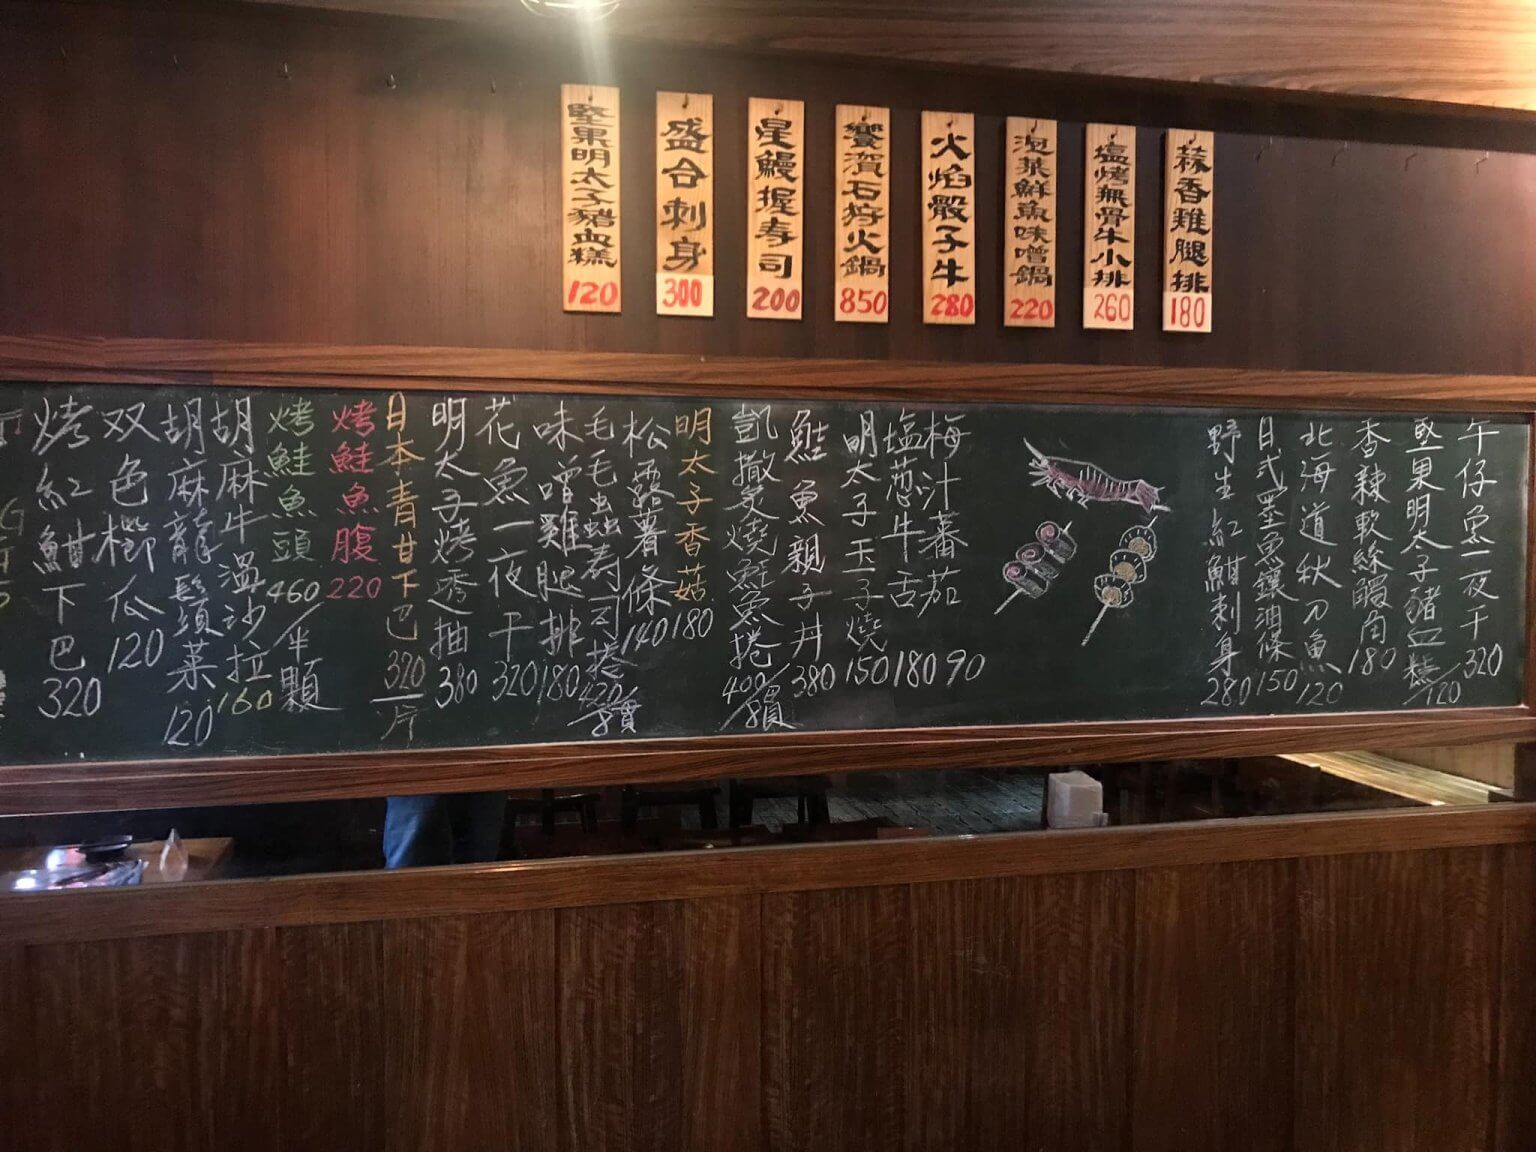 蒜香雞腿排 180
塩烤無骨牛小排 260
泡菜鮮魚味噌鍋 220
火焰骰子牛 280
饗賀石狩火鍋 850
星鰻握寿司 200
盛合刺身 300
堅果明太子豬血糕 120
午仔魚一夜干 320
堅果明太子豬血糕 120
香辣軟絲觸角 180
北海道秋刀魚 120
日式墨魚鑲油條 150
野生紅魽刺身 280
梅汁蕃茄 90
塩葱牛舌 180
明太子玉子燒 150
鮭魚親子丼 380
凱撒炙燒鮭魚捲 400/8貫
明太子香菇 180
松露薯條 140
毛毛虫寿司捲 420/8貫
味噌雞腿排 180
花魚一夜干 320
明太子烤透抽 380
日本青甘下巴 320/片
烤鮭魚腹 220
烤鮭魚頭 460/半顆
胡麻牛温沙拉 160
胡麻龍鬚菜 120
双色櫛瓜 120
烤紅魽下巴 320